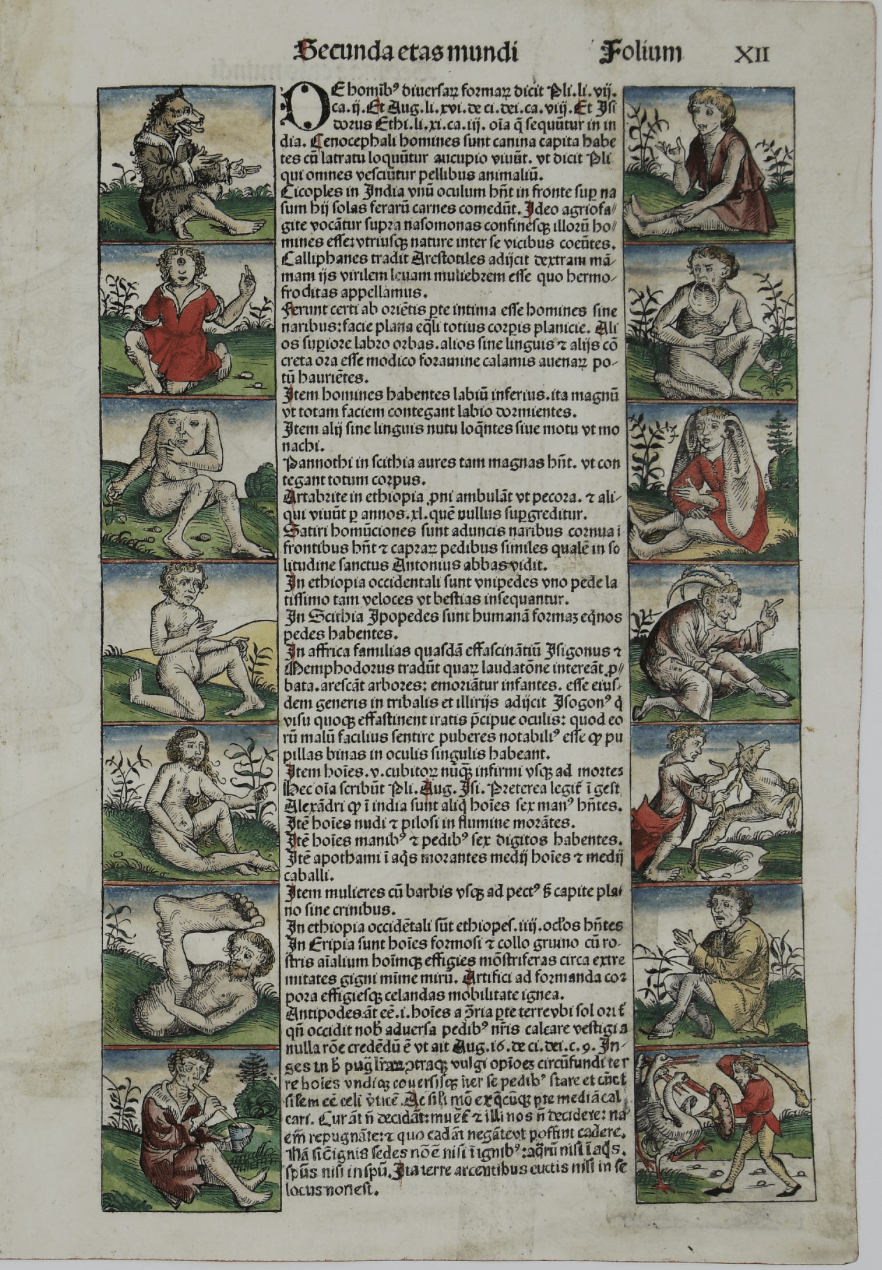 Secunda etas mundi Folium XII
DE homibꝰ diuersaꝝ formaꝝ dicit Pli. li. vij.
ca. ij. Et Aug. li. xvi. de ci. dei. ca. viij. Et Isi
dorus Ethi. li. xi. ca. iij. oĩa q̃ sequũtur in in
dia. Cenocephali homines sunt canina capita habe
tes cũ latratu loquũtur aucupio viuũt. vt dicit Pli
qui omnes vescũtur pellibus animaliũ.
Cicoples in India vnũ oculum hñt in fronte sup na
sum hij solas ferarũ carnes comedũt. Ideo agriofa/
gite vocãtur supra nasomonas confinesqꝫ illorũ ho/
mines esse: vtriusqꝫ nature inter se vicibus coeũtes.
Calliphanes tradit Arestotiles adijcit dextram mã-
mam ijs virilem leuam muliebrem esse quo hermo-
froditas appellamus.
Ferunt certi ab oriẽtis pte intima esse homines sine
naribus: facie plana eq̃li totius corpis planicie. Ali
os supiore labro orbas. alios sine linguis ⁊ alijs cõ
creta ora esse modico foramine calamus auenaꝝ po-
tũ hauriẽtes.
Item homines habentes labiũ inferius. ita magnũ
vt totam faciem contegant labio dormientes.
Item alij sine linguis nutu loq̃ntes siue motu vt mo
nachi.
Pannothi in scithia aures tam magnas hñt. vt con
tegant totum corpus.
Artabrite in ethiopia ꝓni ambulãt vt pecora. ⁊ ali-
qui viuũt p annos. xl. quẽ nullus supgreditur.
Satiri homũciones sunt aduncis naribus cornua i
frontibus hñt ⁊ capraꝝ pedibus similes qualẽ in so
litudine sanctus Antonius abbas vidit.
In ethiopia occidentali sunt vnipedes vno pede la
tissimo tam veloces vt bestias insequantur.
In Scithia Ipopedes sunt humanã formaꝫ eq̃nos
pedes habentes.
In affrica familias quasdã effascinãtiũ Isigonus ⁊
Nemphodorus tradũt quaꝝ laudatõne intereãt ꝓ/
bata. arescãt arbores: emoriãtur infantes. esse eius-
dem generis in tribalis et illirijs adijcit Isogonꝰ q̇
visu quoqꝫ effastinent iratis p̃cipue oculis: quod eo
rũ malũ facilius sentire puberes notabilꝰ esse ꝙ pu
pillas binas in oculis singulis habeant.
Item hoĩes. v. cubitoꝝ nũqꝫ infirmi vsqꝫ ad mortẽ
Hec oĩa scribũt Pli. Aug. Isi. Preterea legit̃ ĩ gest
Alexãdri ꝙ ĩ india sunt aliq̃ hoĩes sex manꝰ hñtes.
Itẽ hoĩes nudi ⁊ pilosi in flumine morãtes.
Itẽ hoĩes manibꝰ ⁊ pedibꝰ sex digitos habentes.
Itẽ apothami ĩ aq̃s morantes medij hoĩes ⁊ medij
caballi.
Item mulieres cũ barbis vsqꝫ ad pectꝰ s̃ capite pla
no sine crinibus.
In ethiopia occidẽtali sũt ethiopes. iiij. oclos hñtes
In Eripia sunt hoĩes formosi ⁊ collo gruino cũ ro-
stris aĩalium hoĩmqꝫ effigies mõstriferas circa extre
mitates gigni mĩme mirũ. Artifici ad formanda cor
pora effigiesqꝫ celandas mobilitate ignea.
Antipodes ãt eẽ. i. hoĩes a ɔ̃ria pte terre vbi sol orit̃
qñ occidit nob̃ aduersa pedibꝰ nr̃is calcare vestigia
nulla rõe credẽdũ ẽ vt ait Aug. 16. de ci. dei. c. 9. In-
ges vulgi opĩoes circũfundi ter
re hoĩes vndiqꝫ stare et
sĩlem eẽ celi pte mediã cal
cari. Cur ãt ñ decidãt: ⁊ illi nos ñ decidere: na
em̃ repugnãte: ⁊ quo cadãt negãte vt possint cadere.
sedes nõ ẽ nisi ĩ ignibꝰ: aq̃rũ nisi ĩ aq̃s.
sp̃us nisi in sp̃u. Ita terre arcentibus cũctis nisi in se
locus non est.